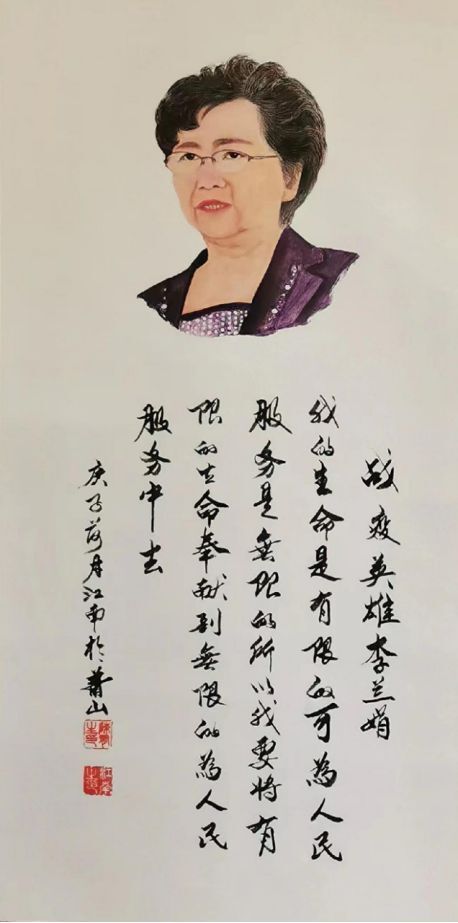 战疫英雄李兰娟
我的生命是有限的可為人民
服务是無限的所以我要将有
限的生命奉献到無限的為人民
服务中去
庚子荷月江南於萧山